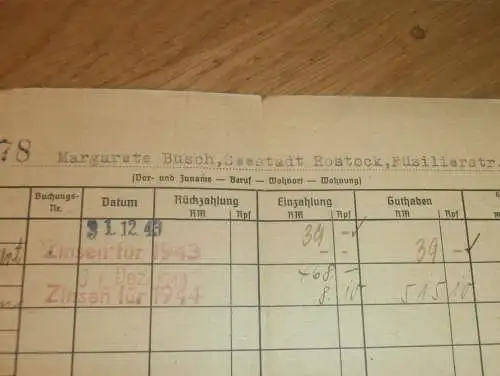 78 Margarete Busch,Seestadt Rostock,Füsilierstr.
(Vor- und Zuname — Beruf — Wohnort — Wohnung)
Buchungs-Nr. Datum Rückzahlung RM Rpf Einzahlung RM Rpf Guthaben RM Rpf
31.12.43 39 -
Zinsen für 1943 - - 39 -
31. Dez. -68. -
Zinsen für 1944 8. 10 515 10